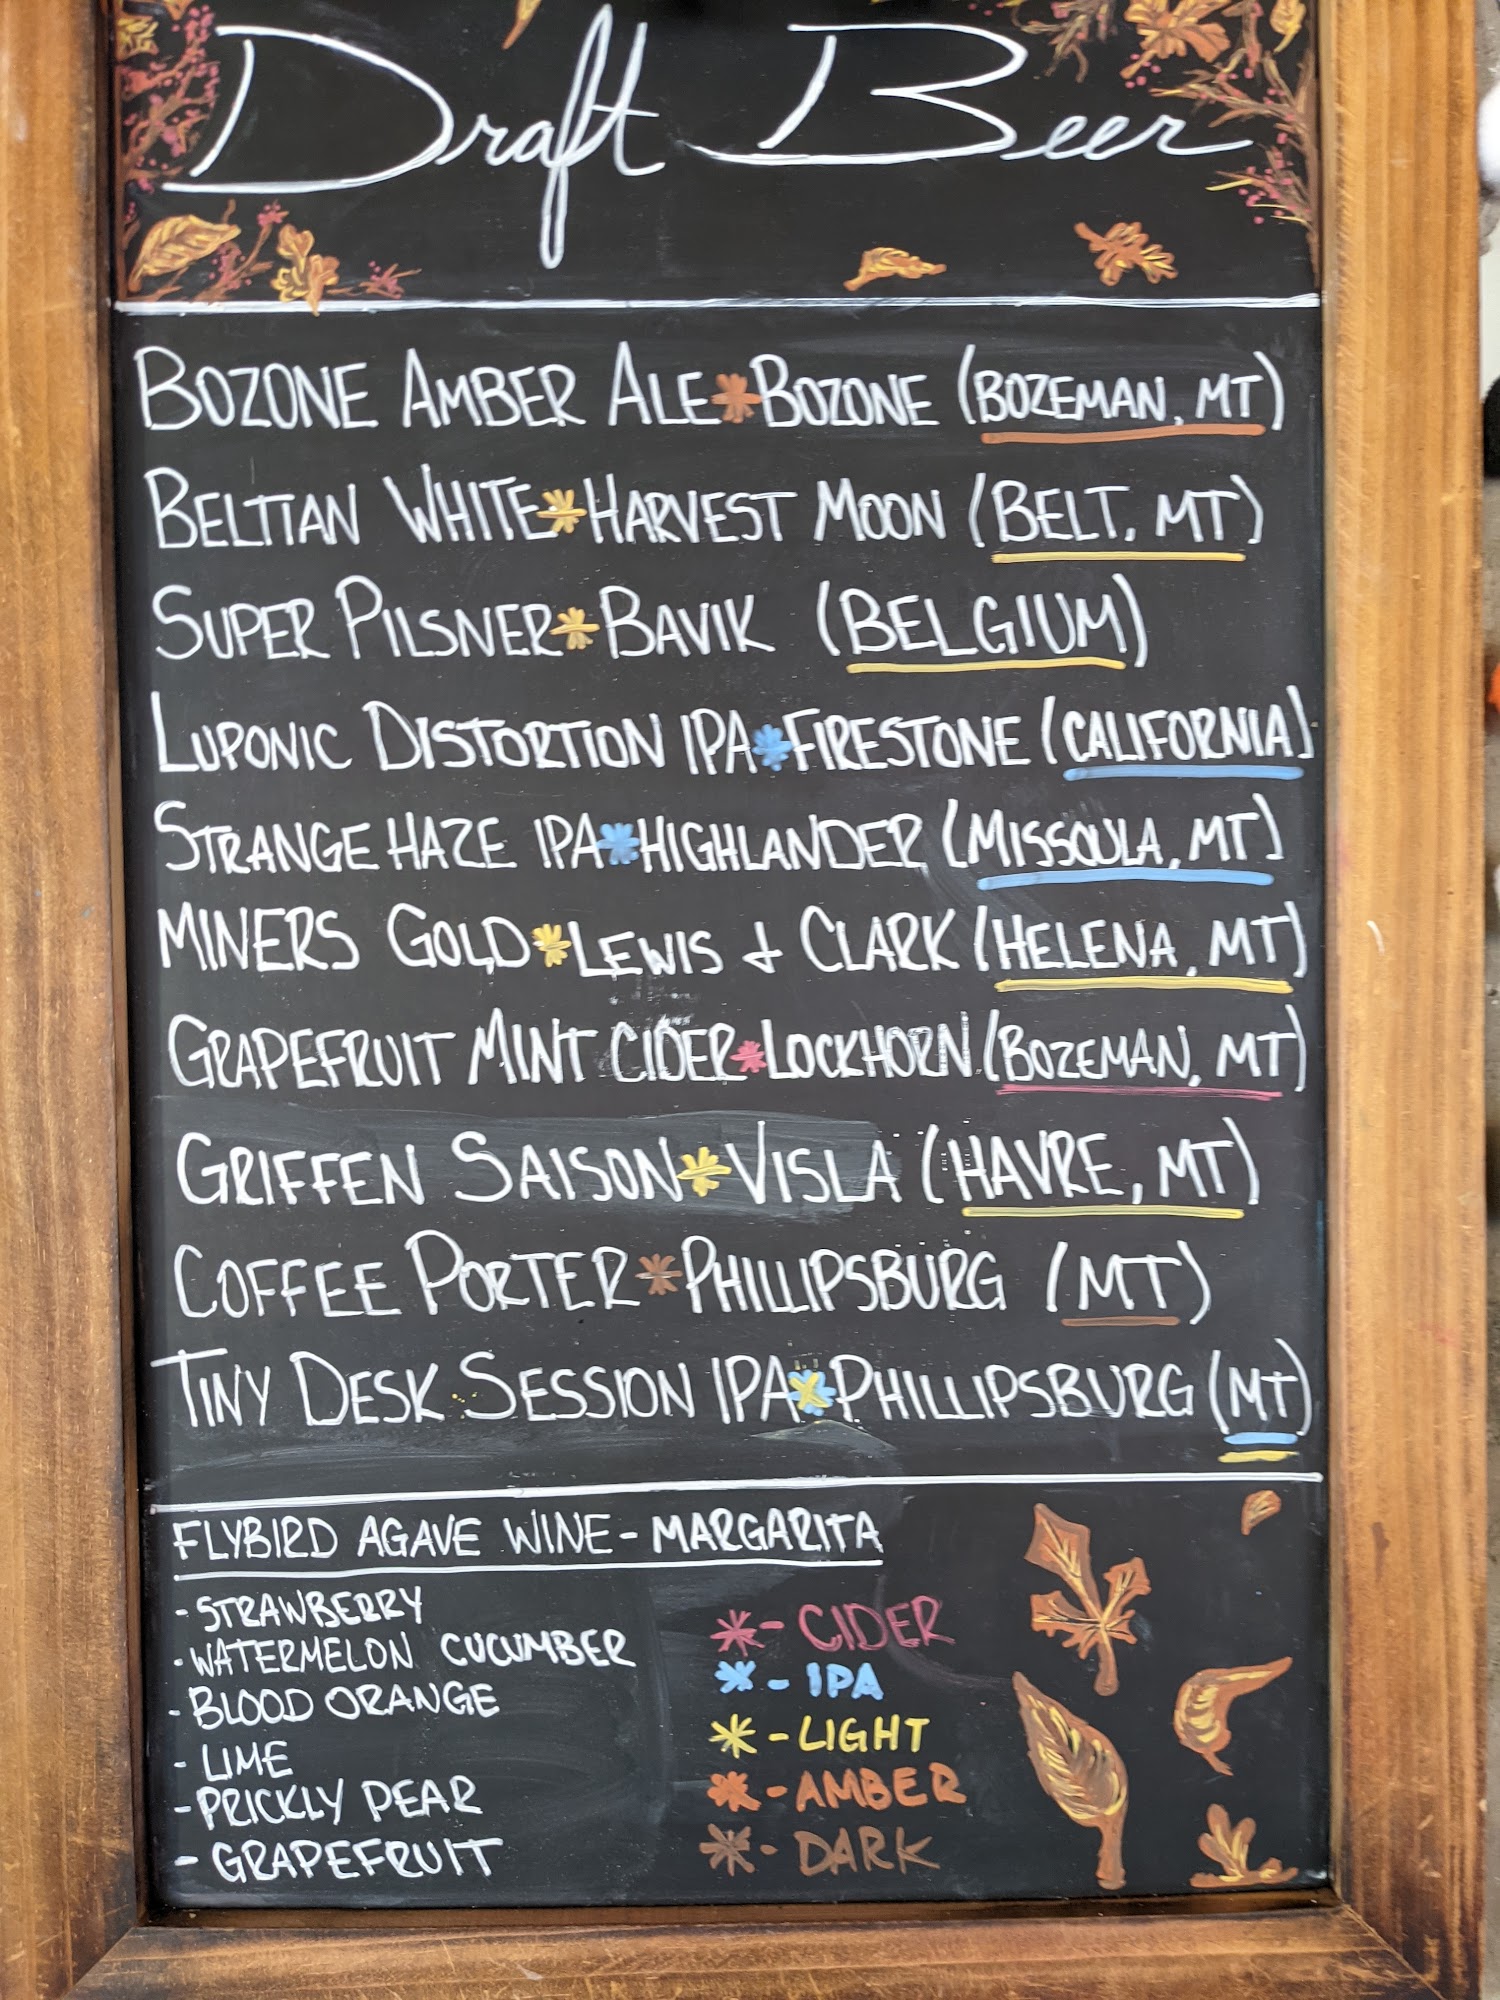 Draft Beer
BOZONE AMBER ALE * BOZONE (BOZEMAN, MT)
BELTIAN WHITE * HARVEST MOON (BELT, MT)
SUPER PILSNER * BAVIK (BELGIUM)
LUPONIC DISTORTION IPA * FIRESTONE (CALIFORNIA)
STRANGE HAZE IPA * HIGHLANDER (MISSOULA, MT)
MINERS GOLD * LEWIS & CLARK (HELENA, MT)
GRAPEFRUIT MINT CIDER * LOCKHORN (BOZEMAN, MT)
GRIFFEN SAISON * VISLA (HAVRE, MT)
COFFEE PORTER * PHILLIPSBURG (MT)
TINY DESK SESSION IPA * PHILLIPSBURG (MT)
FLYBIRD AGAVE WINE - MARGARITA
- STRAWBERRY
- WATERMELON CUCUMBER
- BLOOD ORANGE
- LIME
- PRICKLY PEAR
- GRAPEFRUIT
* - CIDER
* - IPA
* - LIGHT
* - AMBER
* - DARK